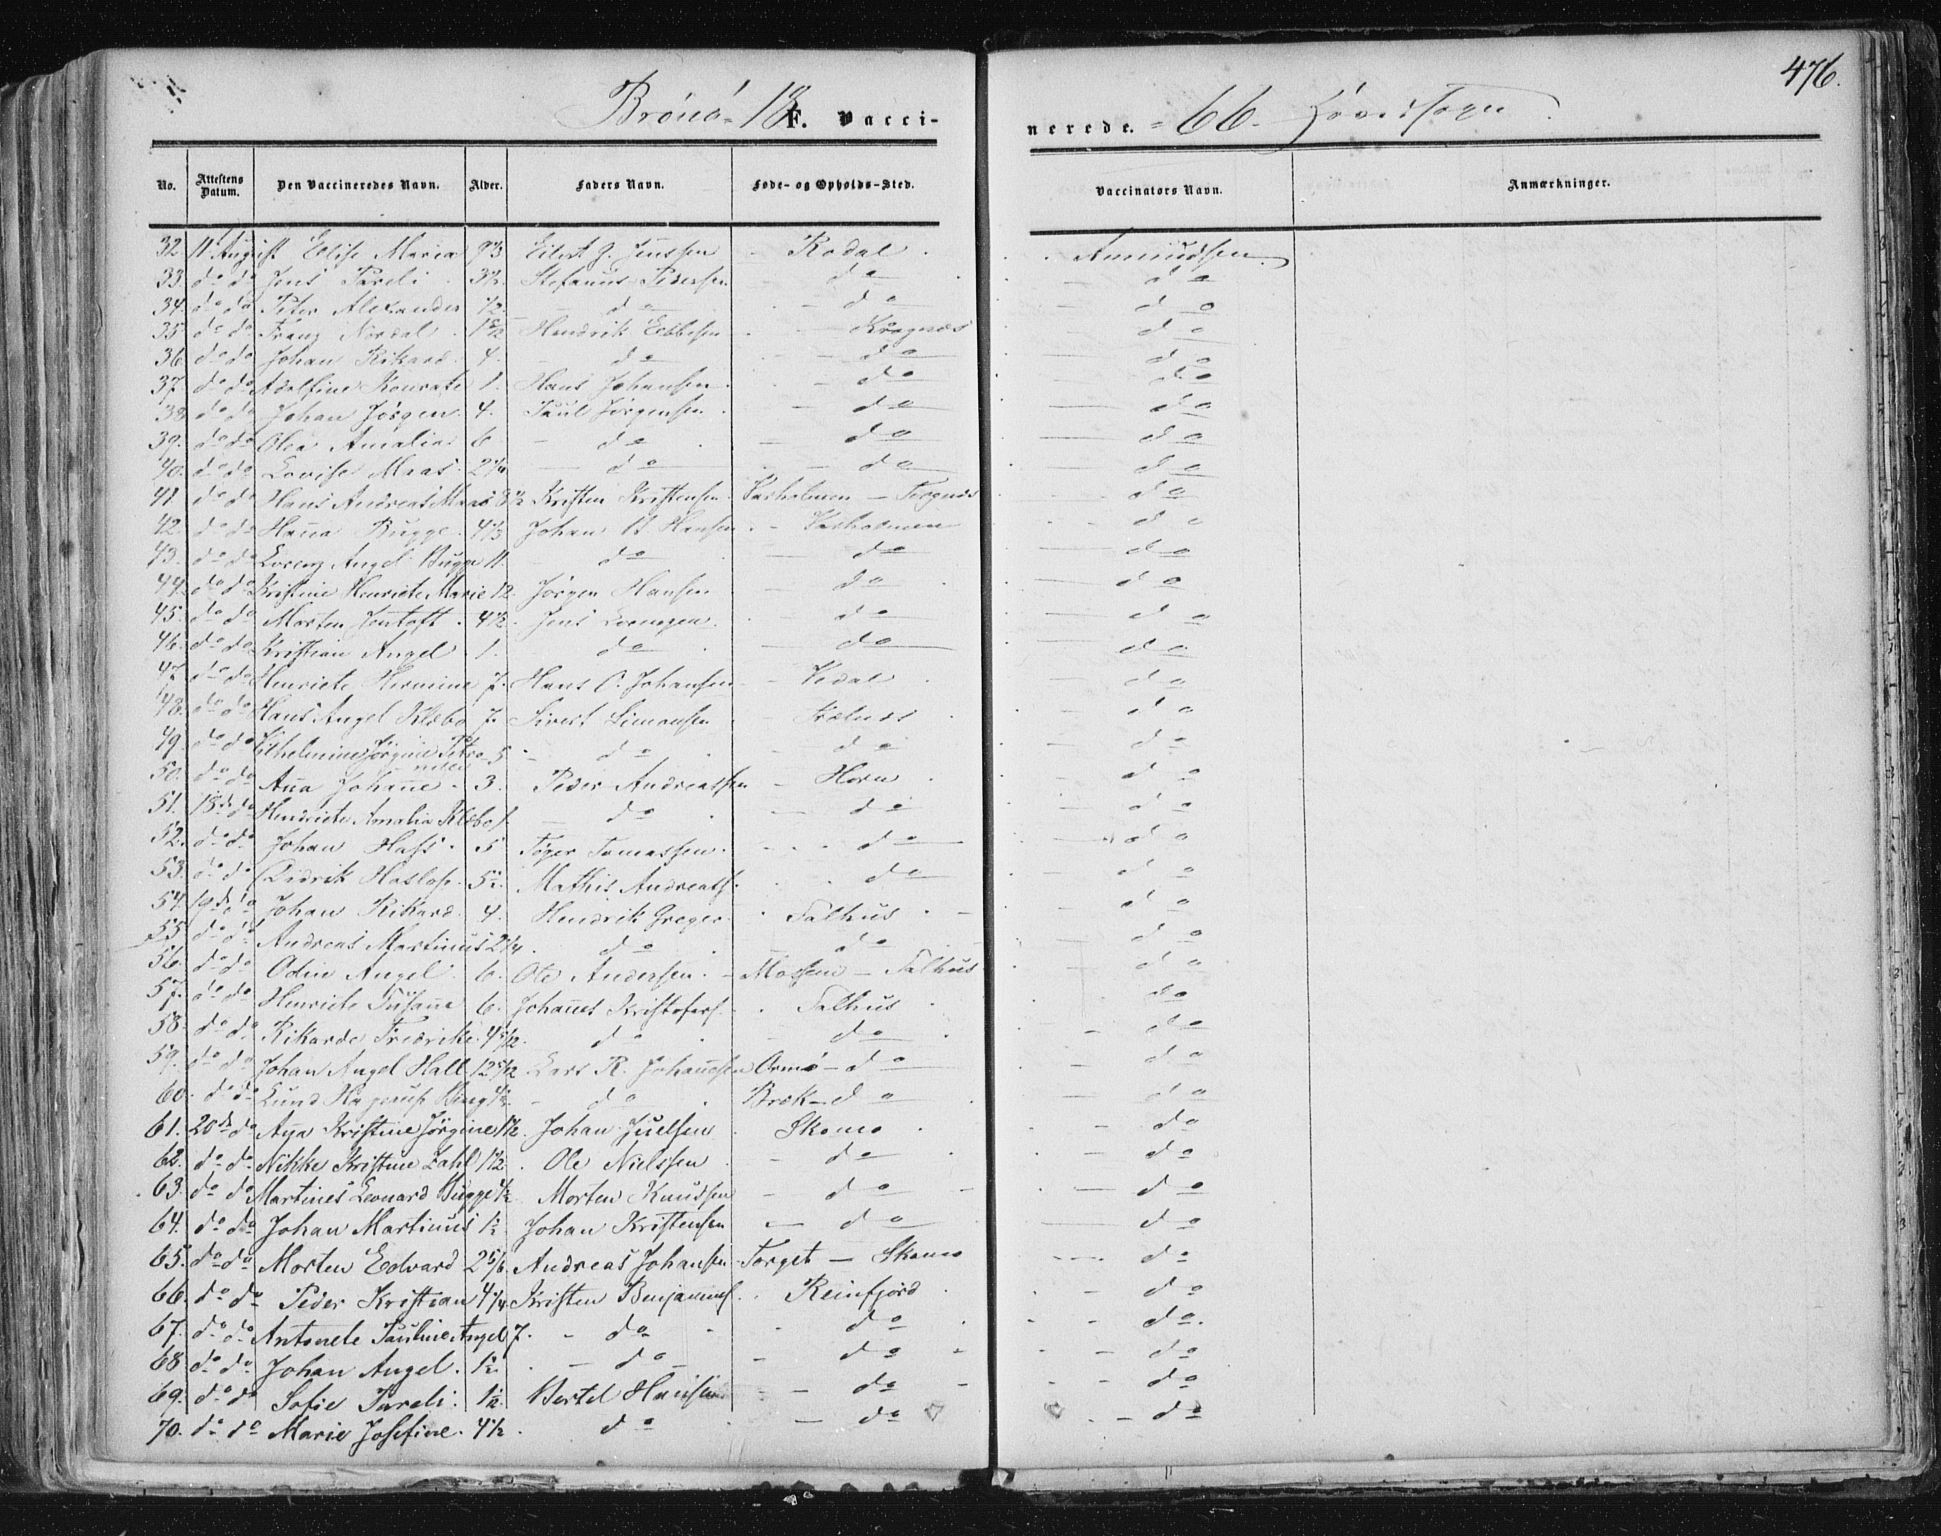 476.
Brönö 18 F. Vacci-nerede. 66. Hovedsogn
No. Attestens Datum. Den Vaccineredes Navn. Alder. Faders Navn. Føde- og Opholds-Sted. Vaccinators Navn. Anmærkninger.
32. 11 August Elise Maria Eilert J. Jenssen - Rodal Amundsen
33. do do Jens Pareli 3 1/2 Stefanus Pedersen do do
34. do do Peter Alexander 1/2 do do do
35 do do Franz Nordal Hendrik Ebbesen Krognes do
36. do do Johan Rikard 4. do do do
37. do do Adolfine Konrate 1. Hans Johansen do do
38 do do Johan Jörgen 4. Paul Jörgensen do do
39. do do Olea Amalia 6 do do do
40. do do Lovise Maas 2 1/4 do do do
41 do do Hans Andreas Maas 3 1/2 Kristen Kristensen - Torgnes do
42. do do Hanna Bugge 4 1/3 Johan B. Hansen do
43. do do Lorenz Angel Bugge 11. do do do
44. do do Kristine Henriete Marie 12. Jörgen Hansen do do
45. do do Morten Jentoft 4 1/2 Jens Lorengen do do
46. do do Kristian Angel 1. do do do
47. do do Henriete Hermine 7. Hans C. Johansen - Vedal do
48. do do Hans Angel Klæbo 7. Sivert Simonsen - Trælnes do
49. do do Vilhelmine Jörgine Petro- 5 do do do
nille
50. do do Anna Johanne 3. Peder Andreassen - Horn do
51. 18de do Hendriete Amalia Klæbo 1. do do do
52. do do Johan Hass 5 Töger Tomassen do do
53. do do Didrik Haslop 5 1/2 Mathis Andreass. do do
54. 19de do Johan Rikard 4. Hendrik Greger Salhus do
55. do do Andreas Martinus 2 1/4 do do do
56. do do Odin Angel 6. Ole Andersen - Mossem - Salhus do
57. do do Henriete Susanne 6. Johannes Kristofers. Salhus do
58. do do Rikarde Fredrike 4 5/12 do do do
59. do do Johan Angel Hall 12 5/12 Lars R. Johannesen Ormö - do do
60. do do Lund Hagerup Bing do Bræk - do do
61. 20de do Anna Kristine Jörgine 1 1/2 Johan Juelsen Skomo do
62. do do Nikke Kristine Zahl 1 1/2 Ole Nielssen do do
63. do do Martines Leonard Bugge 1/2 Morten Knudsen - do do
64. do do Johan Martinus 1 1/2 Johan Kristensen - do do
65. do do Morten Edvard 2 5/6 Andreas Johansen Torget - Skomo do
66. do do Peder Kristian 4 1/4 Kristen Benjamins. Reinfjord do
67. do do Antonete Pauline Angel 7. do do do
68 do do Johan Angel 1 1/2 do do do
69. do do Sofie Pareli Bertel Hansen do do
70. do do Marie Josefine 4 1/2 do do do